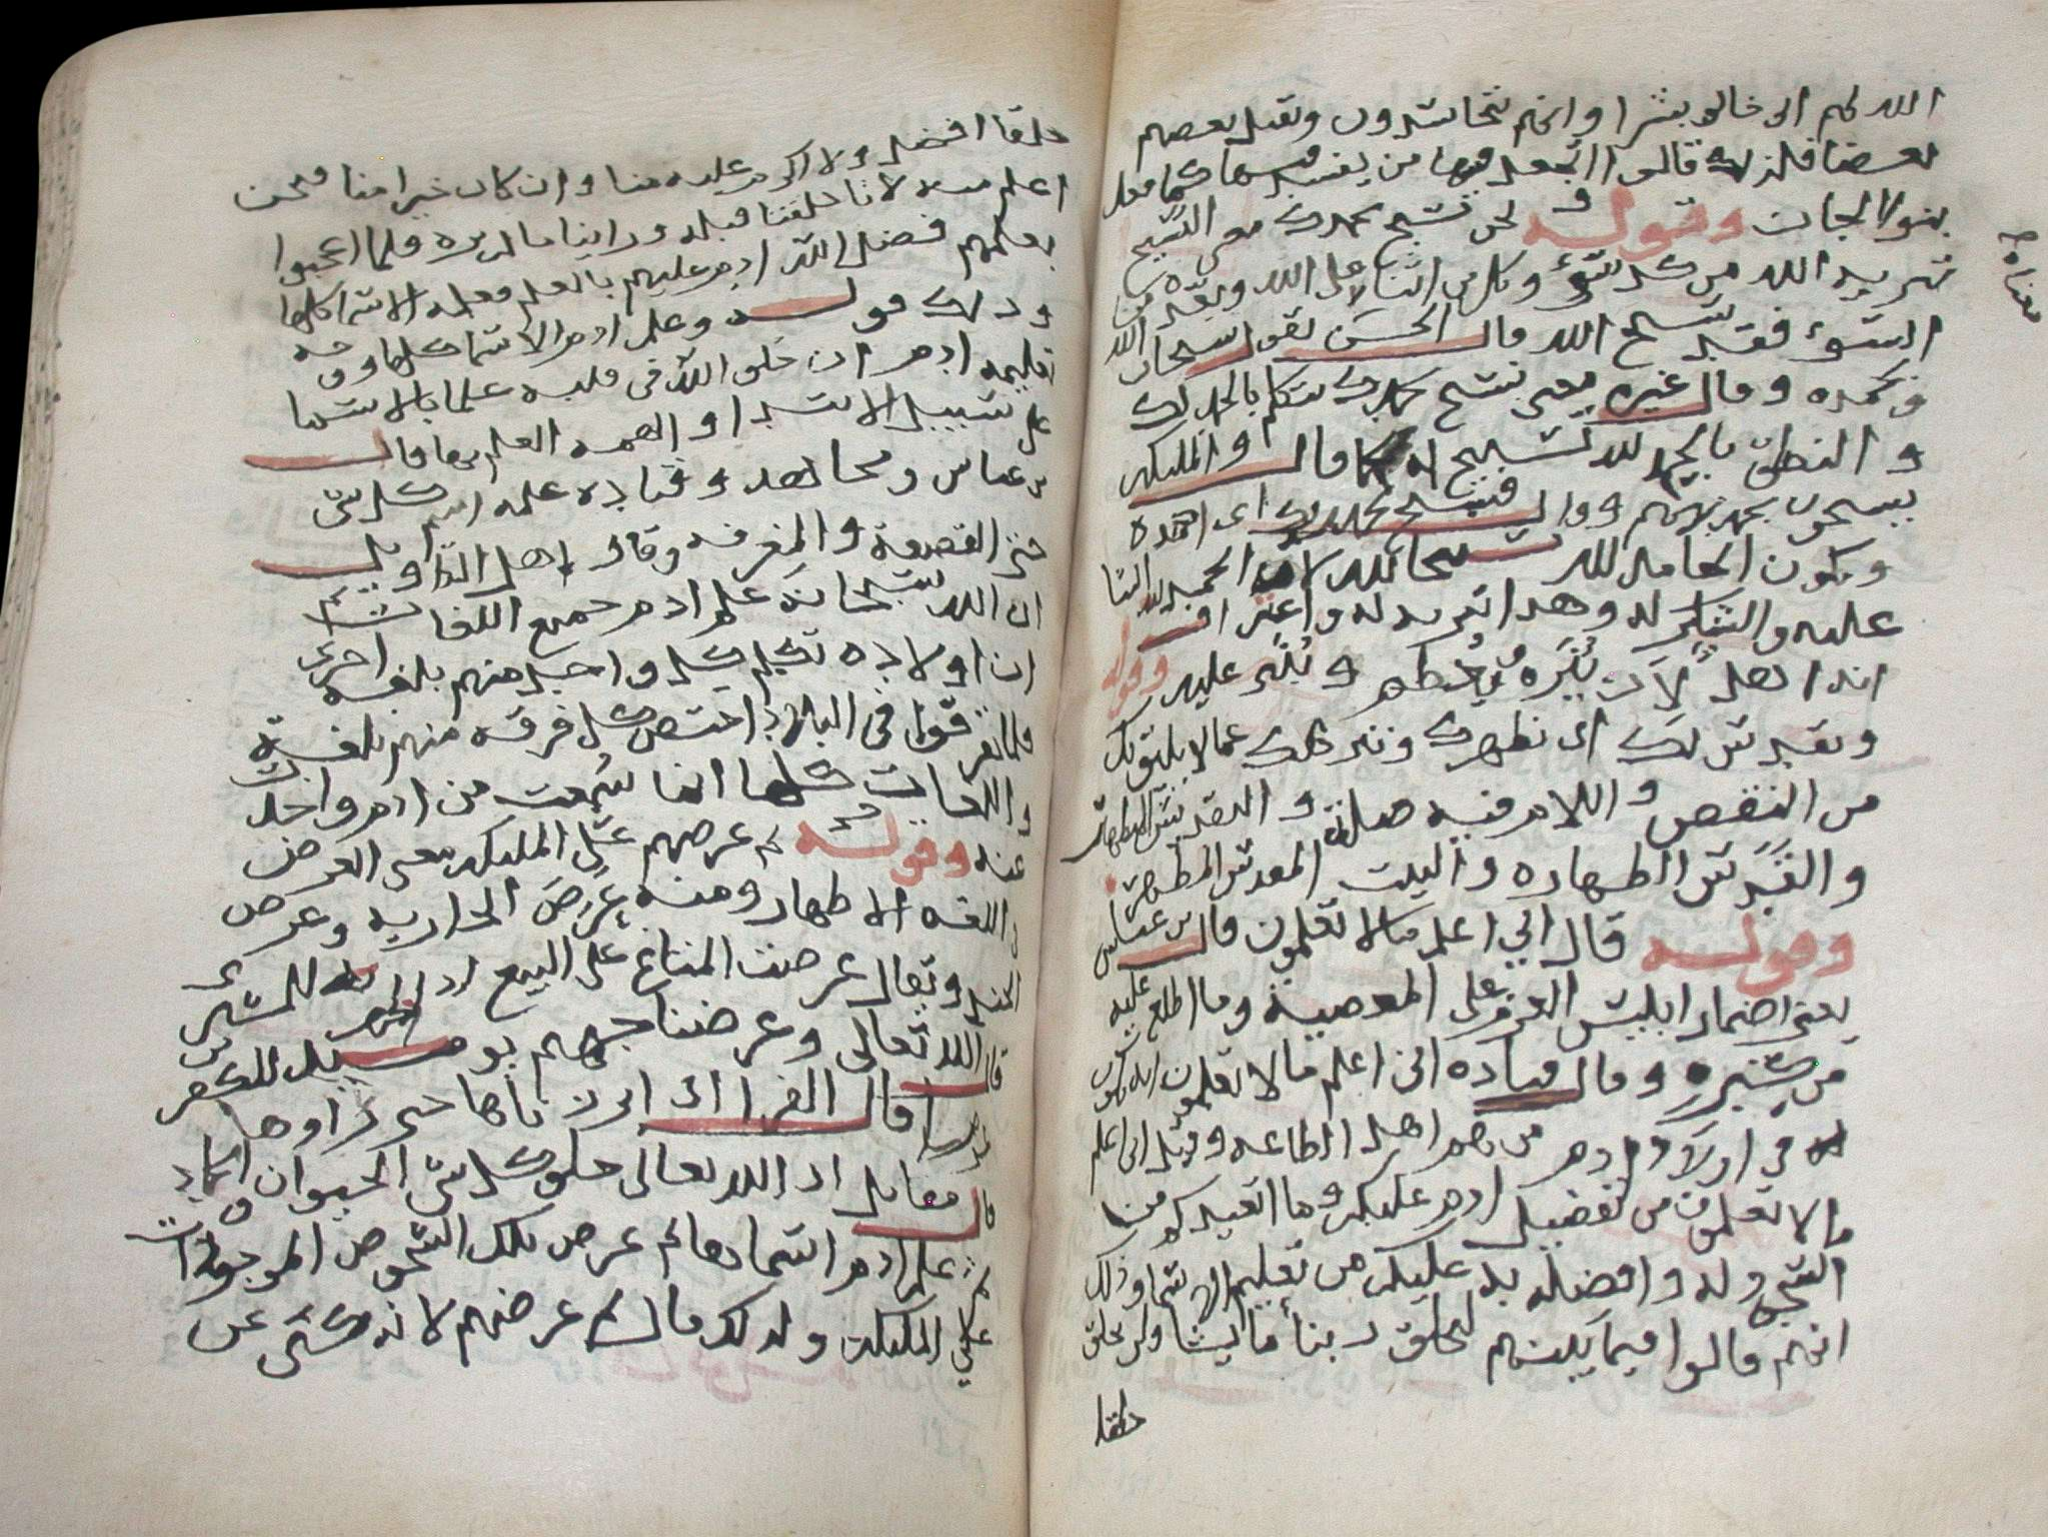 الله لهم اني خالق بشرا وانهم يتحاسدون ويقتل بعضهم
بعضا فلذلك قالوا اتجعل فيها من يفسد فيها كما فعل
بنوا الجان وقوله ونحن نسبح بحمدك معنى التسبيح
تنزيه الله من كل سوء وكل من اثنا على الله وبعده من
السوء فقد سبح الله قال الحسن يقول سبحان الله
وبحمده وقال غيره معنى نسبح بحمدك نتكلم بالحمد لك
والنطق بالحمد لله تسبيح له كما قال والمليكه
يسبحون بحمد ربهم وقال فسبح بحمد ربك اي احمده
ويكون الحامد لله مسبحا لله لان الحمد لله الثنا
عليه والشكر له وهذا تنزيه له واعتراف
انه اهل لان ينزه ويعظم ويثنى عليه وقوله
ونقدس لك اي نطهرك وننزهك عما لا يليق بك
من النقص واللام فيه صلة والتقديس التطهير
والقدس الطهاره والبيت المقدس المطهر
وقوله قال اني اعلم ما لا تعلمون قال بن عباس
يعني اضمار ابليس العزم على المعصية وما اطلع عليه
من كبره وقال قتاده اني اعلم ما لا تعلمون انه يكون
في اولاد ادم من هم اهل الطاعه وقيل اني اعلم
ما لا تعلمون من تفضيل ادم عليكم وما اتعبدكم من
السجود له وافضله به عليكم من تعليم الاسما وذلك
انهم قالوا فيما بينهم ليخلق ربنا ما يشا ولن يخلق
خلقا
معناه
خلقا افضل ولا اكرم عليه منا وان كان خيرا منا فنحن
اعلم منه لانا خلقنا قبله وراينا ما لم يره فلما اعجبوا
بعلمهم فضل الله ادم عليهم بالعلم فعلمه الاسما كلها
وذلك قوله وعلم ادم الاسما كلها وجه
تعليمه ادم ان خلق الله في قلبه علما بالاسما
على سبيل الابتدا والهمه العلم بها قال
بن عباس ومجاهد وقتاده علمه اسم كل شي
حتى القصعة والمغرفه وقال اهل التاويل
ان الله سبحانه علم ادم جميع اللغات ثم
ان اولاده تكلم كل واحد منهم بلغه اخرى
فلما تفرقوا في البلاد اختص كل فرقه منهم بلغة
واللغات كلها انما سمعت من ادم واخذت
عنه وقوله ثم عرضهم على المليكه معنى العرض
في اللغه الاظهار ومنه عرض الجاريه وعرض
الجند ويقال عرضت المتاع على البيع اذا اظهرته للمشتري
قال الله تعالى وعرضنا جهنم يوميذ للكافرين
عرضا قال الفرا اي ابرزناها حتى راوها
قال مقاتل ان الله تعالى خلق كل شي الحيوان والجماد
ثم علم ادم اسماها ثم عرض تلك الشخوص الموجودات
على المليكه ولذلك قال ثم عرضهم لانه كنى عن